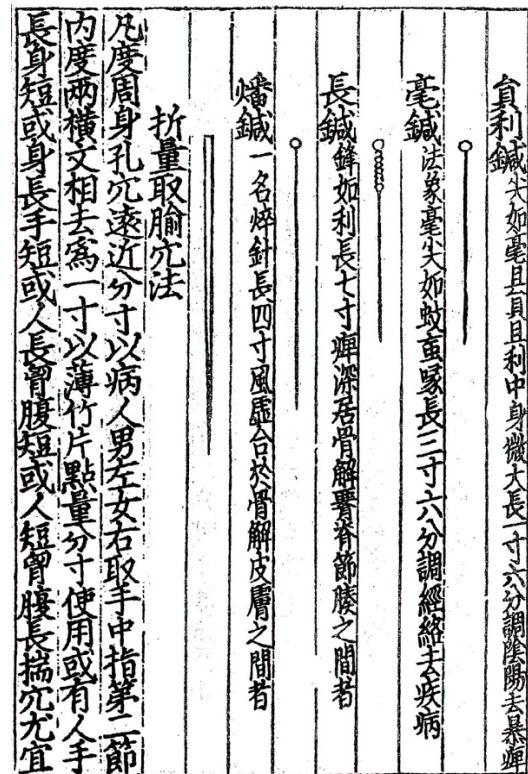 貟利鍼尖如毫且貟且利中身微大長一寸六分調陰陽去暴痺
毫鍼法象毫尖如蚊䖟喙長三寸六分調經絡去疾病
長鍼鋒如利長七寸痺深居骨解腰脊節腠之間者
燔鍼一名焠針長四寸風虛合於骨解皮膚之間者
折量取腧穴法
凡度周身孔穴遠近分寸以病人男左女右取手中指第二節
内度兩横文相去爲一寸以薄竹片點量分寸使用或有人手
長身短或身長手短或人長胷腹短或人短胷腹長揣穴尤宜